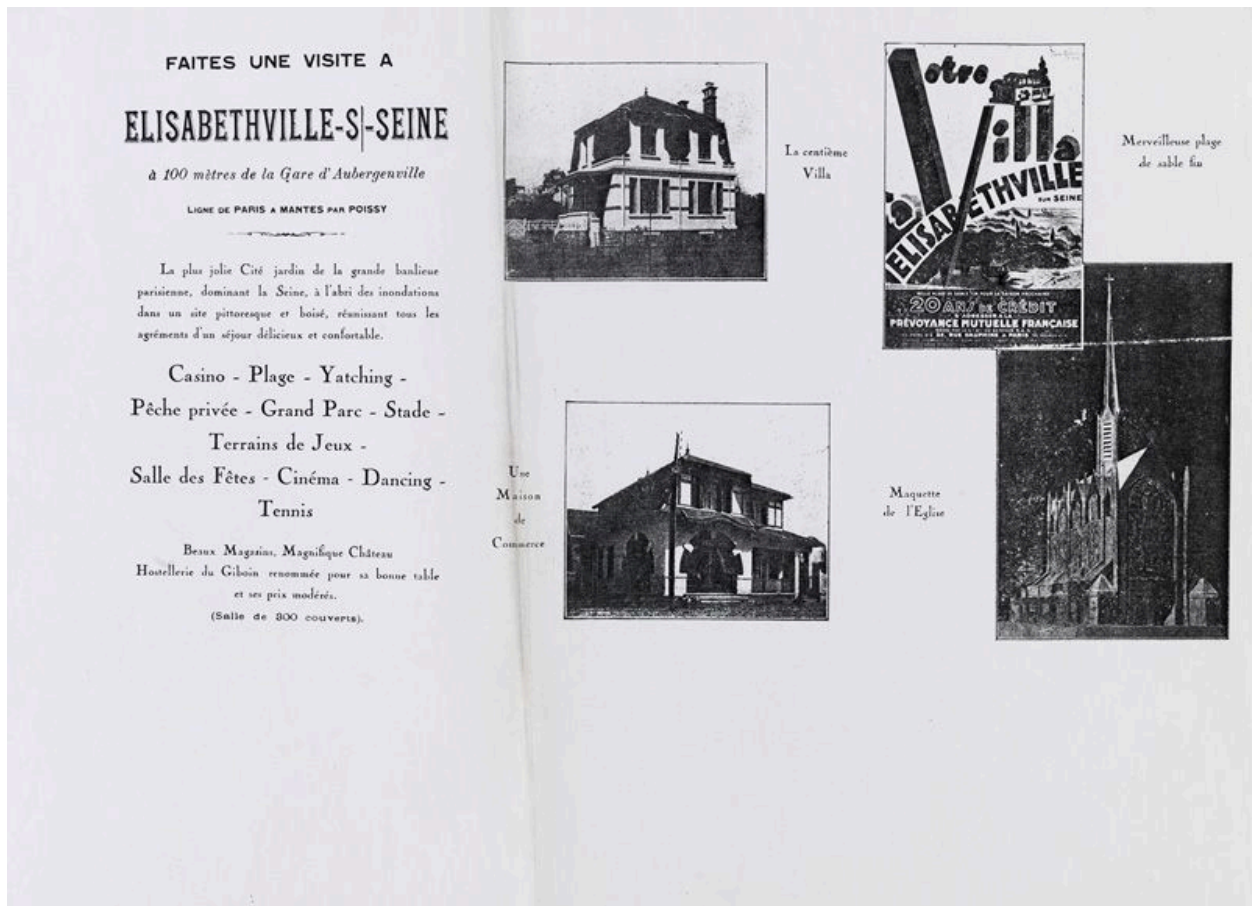 FAITES UNE VISITE A
ELISABETHVILLE-S|-SEINE
à 100 mètres de la Gare d'Aubergenville
LIGNE DE PARIS A MANTES PAR POISSY
La plus jolie Cité jardin de la grande banlieue
parisienne, dominant la Seine, à l'abri des inondations
dans un site pittoresque et boisé, réunissant tous les
agréments d'un séjour délicieux et confortable.
Casino - Plage - Yatching -
Pêche privée - Grand Parc - Stade -
Terrains de Jeux -
Salle des Fêtes - Cinéma - Dancing -
Tennis
Beaux Magasins, Magnifique Château
Hostellerie du Giboin renommée pour sa bonne table
et ses prix modérés.
(Salle de 300 couverts).
La centième
Villa
Une
Maison
de
Commerce
Votre
Villa
à
ELISABETHVILLE
SUR SEINE
20 ANS DE CRÉDIT
S'ADRESSER A LA
PRÉVOYANCE MUTUELLE FRANÇAISE
RUE DAUPHINE A PARIS
Merveilleuse plage
de sable fin
Maquette
de l'Eglise